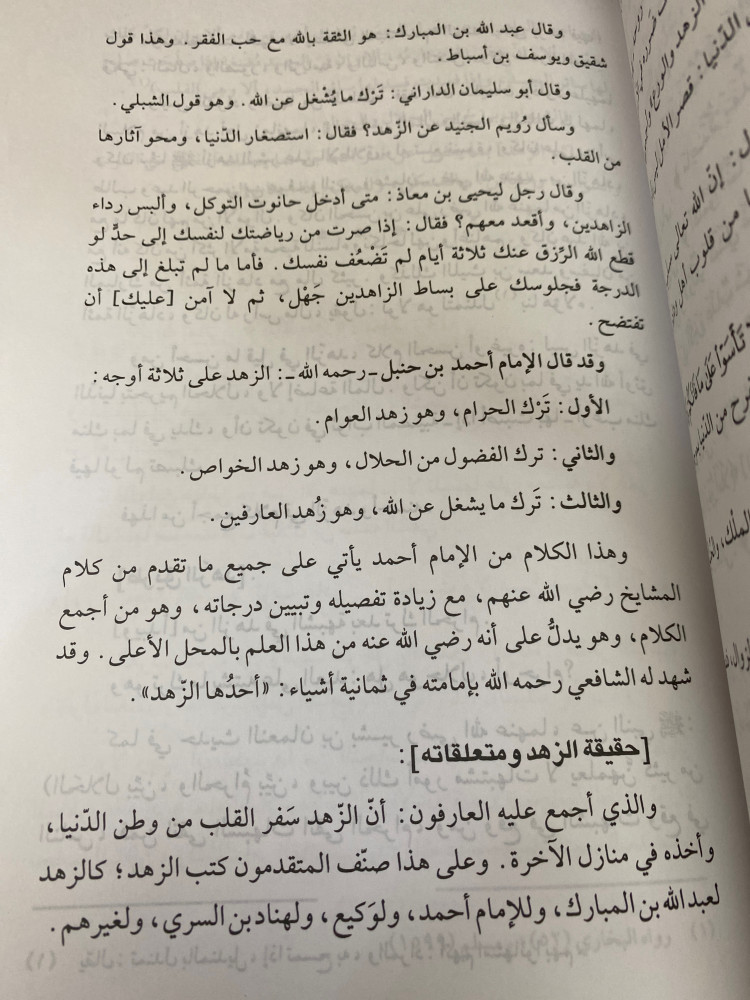 وقال عبد الله بن المبارك: هو الثقة بالله مع حب الفقر. وهذا قول
شقيق ويوسف بن أسباط.
وقال أبو سليمان الداراني: تَرْك ما يُشْغل عن الله. وهو قول الشبلي.
وسأل رُويم الجنيد عن الزّهد؟ فقال: استصغار الدّنيا، ومحو آثارها
من القلب.
وقال رجل ليحيى بن معاذ: متى أدخل حانوت التوكل، وألبس رداء
الزاهدين، وأقعد معهم؟ فقال: إذا صرت من رياضتك لنفسك إلى حدٍّ لو
قطع الله الرِّزق عنك ثلاثة أيام لم تَضْعُف نفسك. فأما ما لم تبلغ إلى هذه
الدرجة فجلوسك على بساط الزاهدين جَهْل، ثم لا آمن [عليك] أن
تفتضح.
وقد قال الإمام أحمد بن حنبل ـ رحمه الله ـ: الزهد على ثلاثة أوجه:
الأول: تَرْك الحرام، وهو زهد العوام.
والثاني: ترك الفضول من الحلال، وهو زهد الخواص.
والثالث: تَرك ما يشغل عن الله، وهو زُهد العارفين.
وهذا الكلام من الإمام أحمد يأتي على جميع ما تقدم من كلام
المشايخ رضي الله عنهم، مع زيادة تفصيله وتبيين درجاته، وهو من أجمع
الكلام، وهو يدلُّ على أنه رضي الله عنه من هذا العلم بالمحل الأعلى. وقد
شهد له الشافعي رحمه الله بإمامته في ثمانية أشياء: «أحدُها الزّهد».
[حقيقة الزهد ومتعلقاته]:
والذي أجمع عليه العارفون: أنّ الزّهد سَفر القلب من وطن الدّنيا،
وأخذه في منازل الآخرة. وعلى هذا صنّف المتقدمون كتب الزهد؛ كالزهد
لعبد الله بن المبارك، وللإمام أحمد، ولوَكيع، ولهناد بن السري، ولغيرهم.